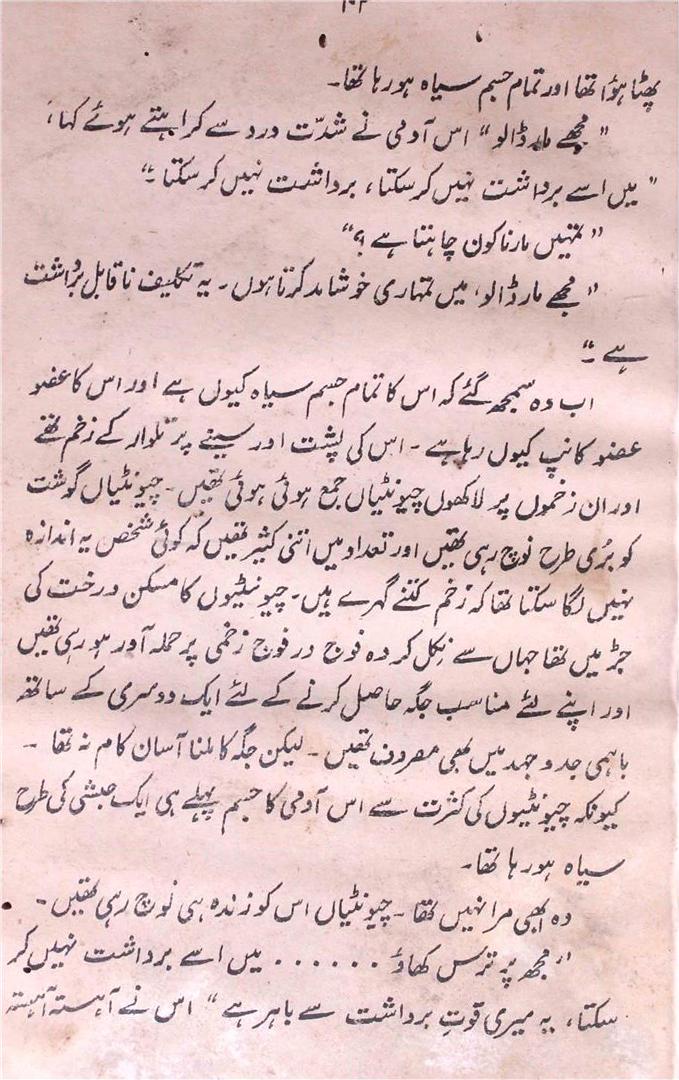 ۱۰۲
پھٹا ہوا تھا اور تمام جسم سیاہ ہو رہا تھا۔
” مجھے مار ڈالو “ اس آدمی نے شدّت درد سے کراہتے ہوئے کہا،
” میں اسے برداشت نہیں کر سکتا، برداشت نہیں کر سکتا ۔“
” تمہیں مارنا کون چاہتا ہے ؟“
” مجھے مار ڈالو، میں تمہاری خوشامد کرتا ہوں۔ یہ تکلیف ناقابل برداشت
ہے ۔“
اب وہ سمجھ گئے کہ اس کا تمام جسم سیاہ کیوں ہے اور اس کا عضو
عضو کانپ کیوں رہا ہے ۔ اس کی پشت اور سینے پر تلوار کے زخم تھے
اور ان زخموں پر لاکھوں چیونٹیاں جمع ہوئی ہوئی تھیں۔ چیونٹیاں گوشت
کو بُری طرح نوچ رہی تھیں اور تعداد میں اتنی کثیر تھیں کہ کوئی شخص یہ اندازہ
نہیں لگا سکتا تھا کہ زخم کتنے گہرے ہیں۔ چیونٹیوں کا مسکن درخت کی
جڑ میں تھا جہاں سے نکل کر وہ فوج در فوج زخمی پر حملہ آور ہو رہی تھیں
اور اپنے لئے مناسب جگہ حاصل کرنے کے لئے ایک دوسری کے ساتھ
باہمی جدوجہد میں بھی مصروف تھیں ۔ لیکن جگہ کا ملنا آسان کام نہ تھا ۔
کیونکہ چیونٹیوں کی کثرت سے اس آدمی کا جسم پہلے ہی ایک حبشی کی طرح
سیاہ ہو رہا تھا۔
وہ ابھی مرا نہیں تھا ۔ چیونٹیاں اس کو زندہ ہی نوچ رہی تھیں۔
” مجھ پر ترس کھاؤ . . . . . . میں اسے برداشت نہیں کر
سکتا، یہ میری قوتِ برداشت سے باہر ہے “ اس نے آہستہ آہستہ